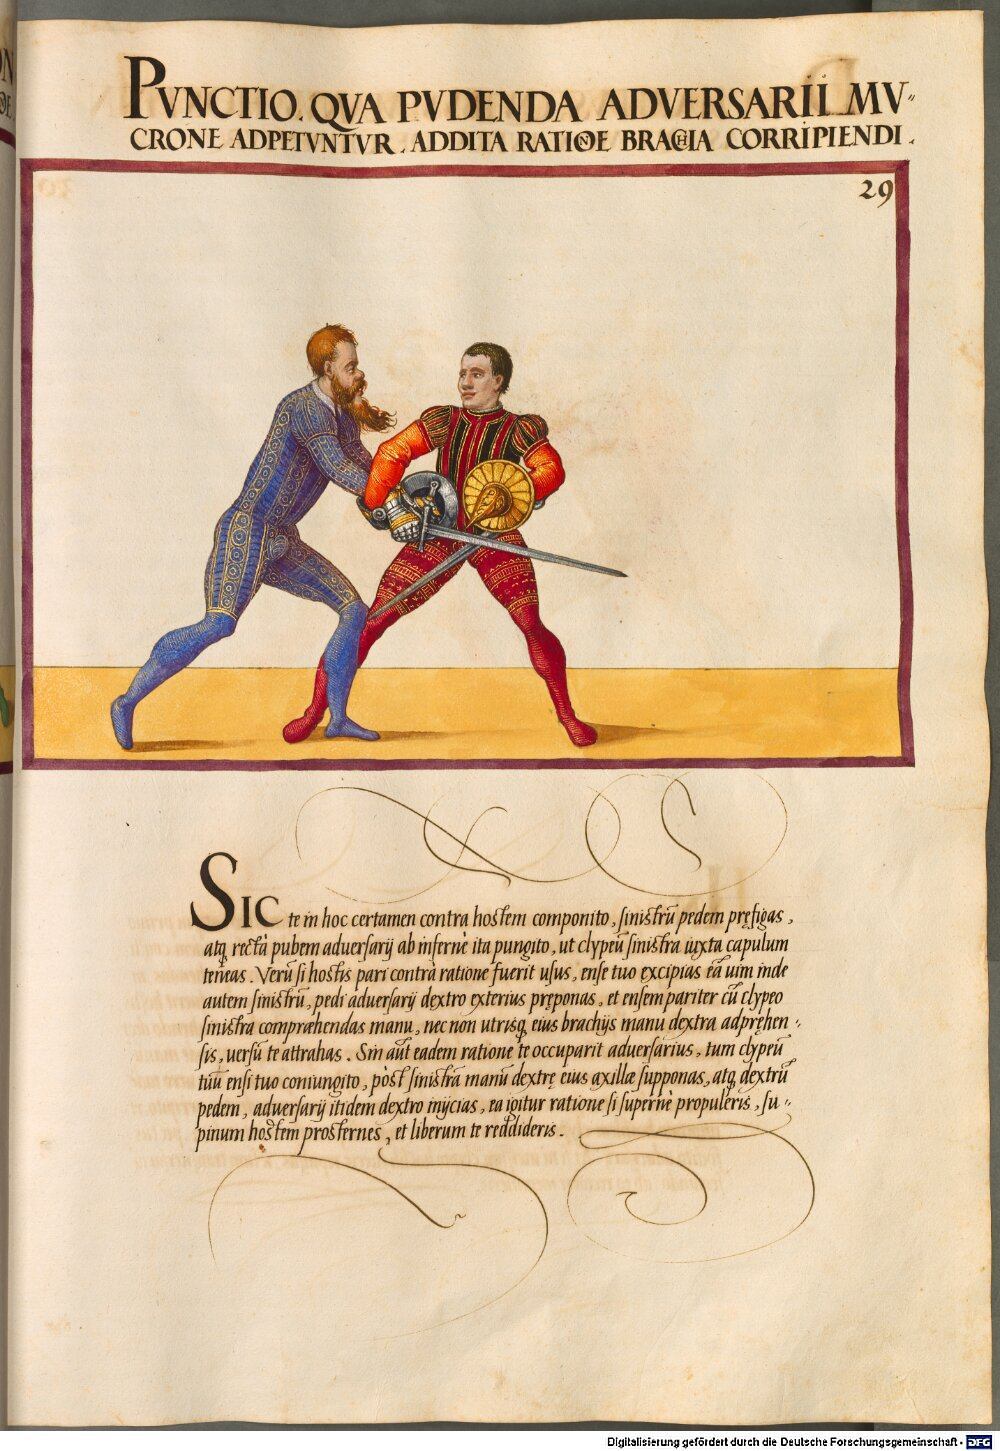 PVNCTIO. QVA PVDENDA ADVERSARII MV"
CRONE ADPETVNTVR. ADDITA RATIONE BRACHIA CORRIPIENDI.
29
SIC te in hoc certamen contra hostem componito, sinistrũ pedem pręfigas,
atq rectà pubem adversarij ab infernè ita pungito, ut clypeũ sinistra iuxta capulum
teneas. Verũ si hostis pari contrà ratione fuerit usus, ense tuo excipias eã uim inde
autem sinistrũ, pedi adversarij dextro exterius pręponas, et ensem pariter cũ clypeo
sinistra comprahendas manu, nec non utrisq eius brachijs manu dextra adpręhen"
sis, versũ te attrahas. Sin aũt eadem ratione te occuparit adversarius, tum clypeũ
tuũ ensi tuo coniungito, pòst sinistrã manũ dextrę eius axillæ supponas, atq dextrũ
pedem, adversarij itidem dextro inijcias, ea igitur ratione si supernè propuleris, su"
pinum hostem prosternes, et liberum te reddideris.
Digitalisierung gefördert durch die Deutsche Forschungsgemeinschaft - DFG